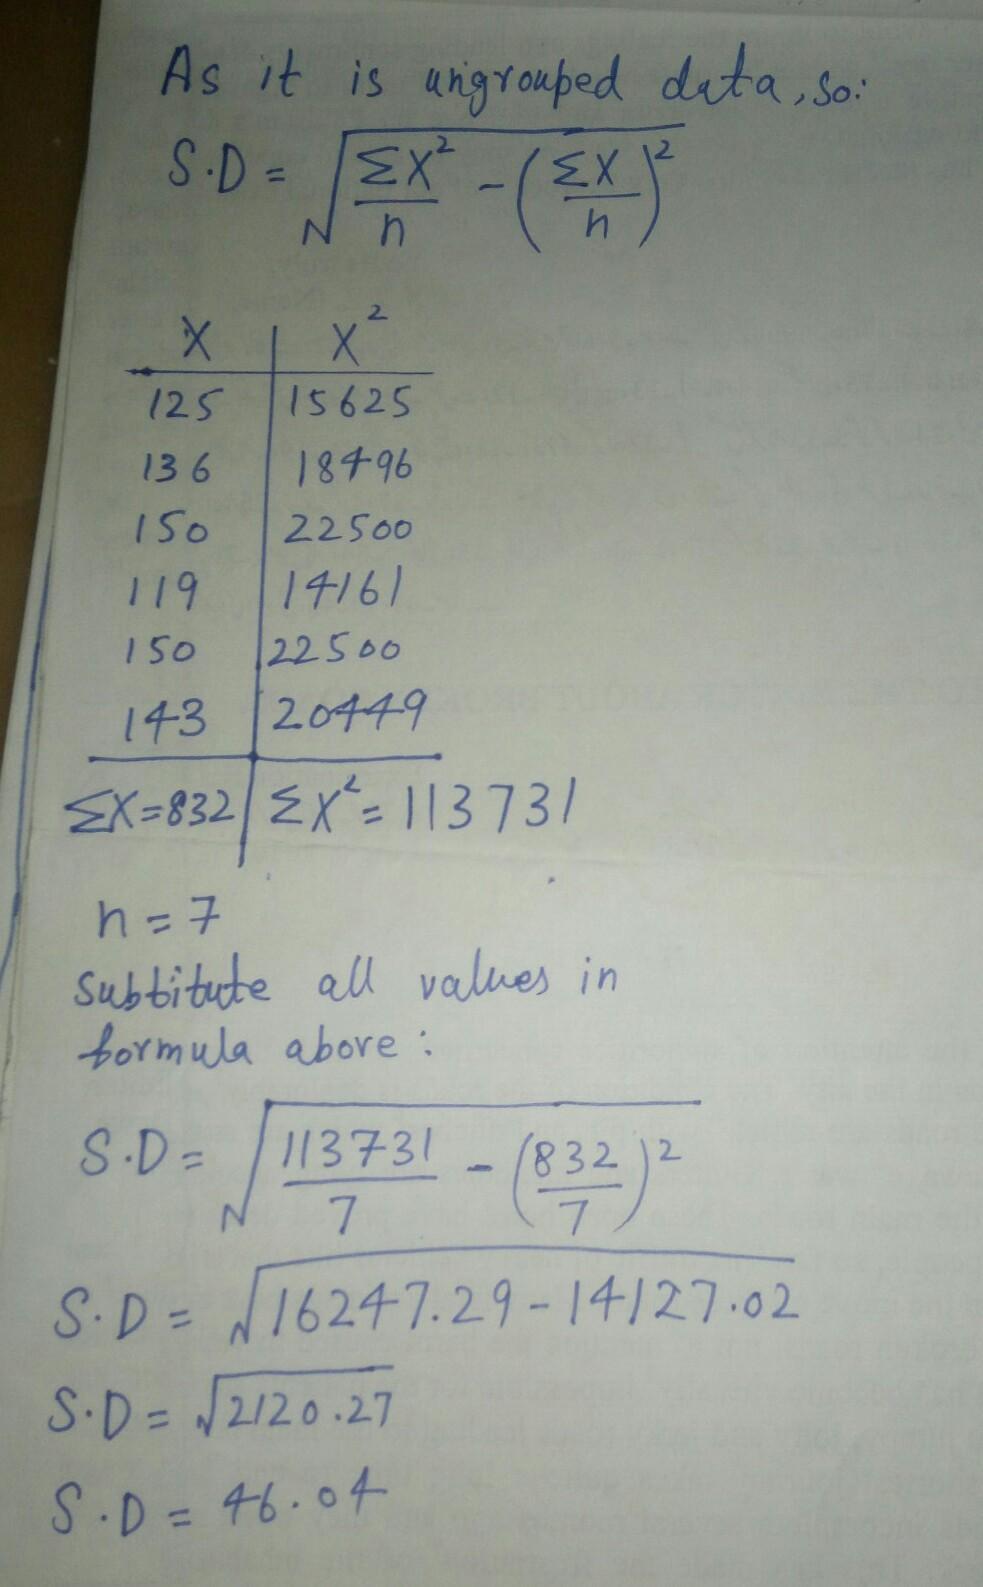 As it is ungrouped data, so:
S.D = √(ΣX²/n - (ΣX/n)²)
X | X²
125 | 15625
136 | 18496
150 | 22500
119 | 14161
150 | 22500
143 | 20449
ΣX=832 | ΣX²=113731
n=7
Subtitute all values in
formula above:
S.D = √(113731/7 - (832/7)²)
S.D = √16247.29-14127.02
S.D = √2120.27
S.D = 46.04